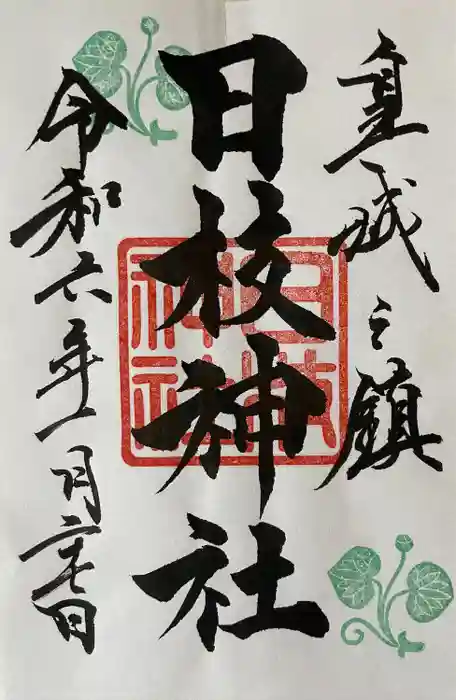 皇城之鎮
日枝神社
日枝神社
令和六年一月二十七日